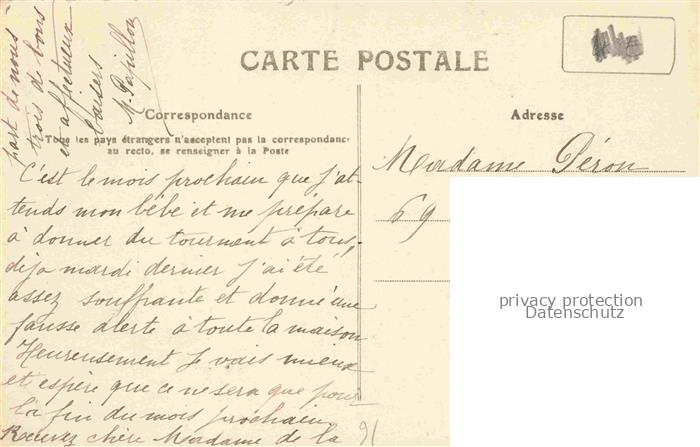 CARTE POSTALE
Correspondance
Tous les pays étrangers n'acceptent pas la correspondance
au recto, se renseigner à la Poste
C'est le mois prochain que j'at-
tends mon bébé et me prépare
à donner du tourment à tous,
déja mardi dernier j'ai été
assez souffrante et donné une
fausse alerte à toute la maison
Heureusement je vais mieux
et espère que ce ne sera que pour
la fin du mois prochain
Recevez chère Madame de la
part de nous
trois de bons
et affectueux
baisers
M. Papillon
Adresse
Madame Péron
69
91
privacy protection
Datenschutz